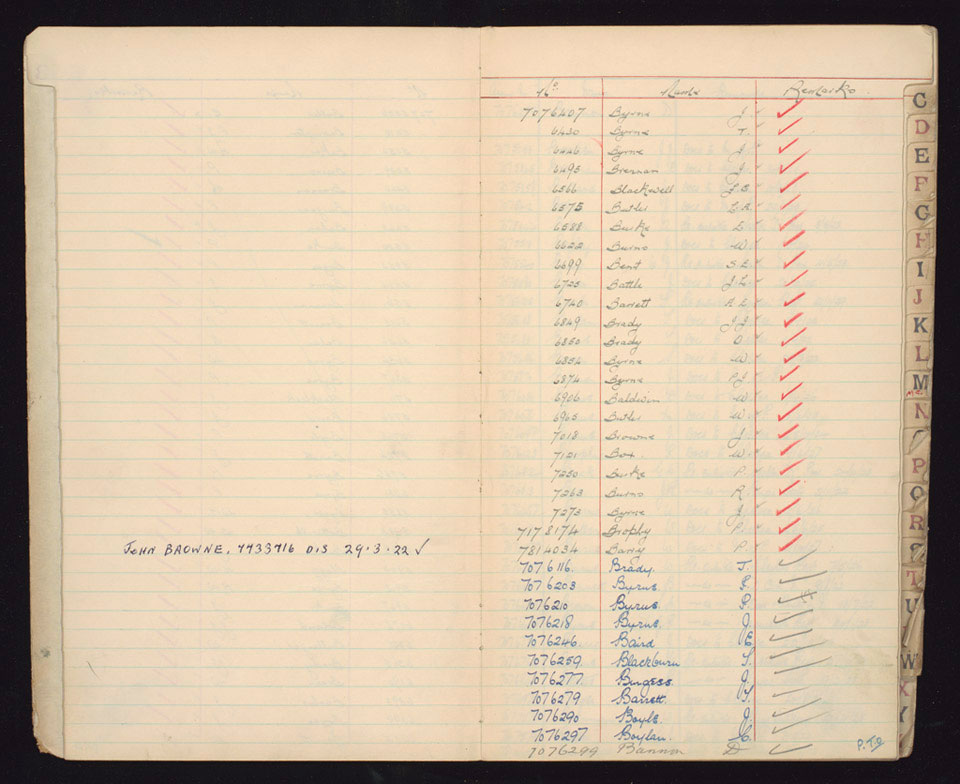 JOHN BROWNE. 7733716 D.S 29.3.22 ✓
No Name Remarks
7076407 Byrne J ✓
6430 Byrne T. ✓
6446 Byrne J ✓
6495 Brennan J ✓
6566 Blackwell ✓
6575 Butler ✓
6588 Burke ✓
6622 Burns W ✓
6699 Bent S.E ✓
6725 Battle J.L ✓
6740 Barrett ✓
6849 Brady J.J ✓
6850 Brady O ✓
6852 Byrne W ✓
6874 Byrne P.J ✓
6906 Baldwin W ✓
6965 Butler W ✓
7018 Browne J ✓
7121 Box W ✓
7250 Burke P ✓
7263 Burns R ✓
7273 Byrne J ✓
7178174 Brophy P ✓
7814034 Barry P ✓
7076116 Brady. J. ✓
7076203 Byrne ✓
7076210 Byrne P. ✓
7076218 Byrne J. ✓
7076246. Baird E ✓
7076259 Blackburn ✓
7076277 Burgess. J. ✓
7076279 Barrett ✓
7076290 Boyle J. ✓
7076297 Boylan. ✓
7076299 Bannon D ✓
P.T.O
C
D
E
F
G
H
I
J
K
L
M
Mc
N
P
Q
R
T
U
W
X
Y